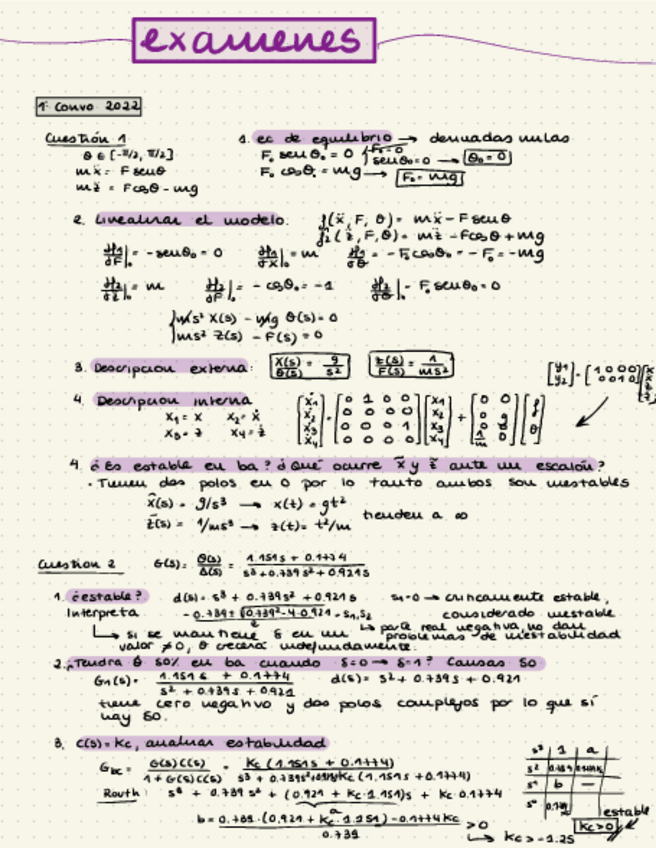 examenes
1ª Convo 2022
Cuestión 1
θ ∈ [-π/2, π/2]
mẍ = F senθ
mz̈ = F cosθ - mg
1. ec de equilibrio → derivadas nulas
F₀ senθ₀ = 0 { F₀=0 senθ₀=0 → θ₀=0
F₀ cosθ₀ = mg → F₀ = mg
2. Linealizar el modelo.
f₁(ẍ, F, θ) = mẍ - F senθ
f₂(z̈, F, θ) = mz̈ - F cosθ + mg
∂f₁/∂F|₀ = -senθ₀ = 0 ∂f₁/∂ẍ|₀ = m ∂f₁/∂θ|₀ = -F₀cosθ₀ = -F₀ = -mg
∂f₂/∂z̈|₀ = m ∂f₂/∂F|₀ = -cosθ₀ = -1 ∂f₂/∂θ|₀ = F₀ senθ₀ = 0
ms² X(s) - mg θ(s) = 0
ms² Z(s) - F(s) = 0
3. Descripcion externa: X(s)/θ(s) = g/s² Z(s)/F(s) = 1/ms²
4. Descripcion interna
x₁ = x x₂ = ẋ
x₃ = z x₄ = ż
[ẋ₁ ẋ₂ ẋ₃ ẋ₄] = [0 1 0 0; 0 0 0 0; 0 0 0 1; 0 0 0 0] [x₁ x₂ x₃ x₄] + [0 0; 0 g; 0 0; 1/m 0] [f θ]
[y₁ y₂] = [1 0 0 0; 0 0 1 0]
4. ¿Es estable en ba? ¿Qué ocurre x̃ y z̃ ante un escalón?
• Tienen dos polos en 0 por lo tanto ambos son inestables
x̃(s) = g/s³ → x(t) = gt²
z̃(s) = 1/ms³ → z(t) = t²/m
tienden a ∞
Cuestion 2 G(s) = θ(s)/Δ(s) = (1.151s + 0.1774)/(s³ + 0.739s² + 0.921s)
1. ¿estable? d(s) = s³ + 0.739s² + 0.921s s₁=0 → criticamente estable,
Interpreta (-0.739 ± √(0.739² - 4·0.921))/2 = s₁,s₂ considerado inestable
↳ parte real negativa, no dan problemas de inestabilidad
↳ si se mantiene δ en un
valor ≠0, θ crecerá indefinidamente.
2. ¿Tendra θ SO% en ba cuando δ=0 → δ=1? Causas SO
G₁(s) = (1.151s + 0.1774)/(s² + 0.739s + 0.921) d(s) = s² + 0.739s + 0.921
tiene cero negativo y dos polos complejos por lo que sí
hay SO.
3. C(s) = Kc, analizar estabilidad
Gbc = G(s)C(s)/(1 + G(s)C(s)) = Kc(1.151s + 0.1774)/(s³ + 0.739s² + 0.921s + Kc(1.151s + 0.1774))
Routh: s³ + 0.739s² + (0.921 + Kc·1.151)s + Kc·0.1774
a
b = (0.739·(0.921 + Kc·1.151) - 0.1774Kc)/0.739 > 0
↳ Kc > -1.25
s³ 1 a
s² 0.739
s¹ b —
s⁰
estable
Kc>0